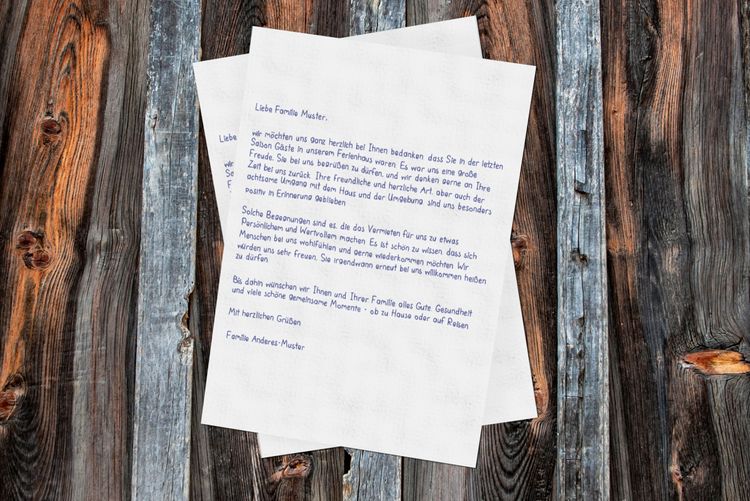 Liebe Familie Muster,
wir möchten uns ganz herzlich bei Ihnen bedanken, dass Sie in der letzten
Saison Gäste in unserem Ferienhaus waren. Es war uns eine große
Freude, Sie bei uns begrüßen zu dürfen, und wir denken gerne an Ihre
Zeit bei uns zurück. Ihre freundliche und herzliche Art, aber auch der
achtsame Umgang mit dem Haus und der Umgebung sind uns besonders
positiv in Erinnerung geblieben.
Solche Begegnungen sind es, die das Vermieten für uns zu etwas
Persönlichem und Wertvollem machen. Es ist schön zu wissen, dass sich
Menschen bei uns wohlfühlen und gerne wiederkommen möchten. Wir
würden uns sehr freuen, Sie irgendwann erneut bei uns willkommen heißen
zu dürfen.
Bis dahin wünschen wir Ihnen und Ihrer Familie alles Gute, Gesundheit
und viele schöne gemeinsame Momente - ob zu Hause oder auf Reisen.
Mit herzlichen Grüßen
Familie Anderes-Muster
Liebe
wir
Sai
Fre